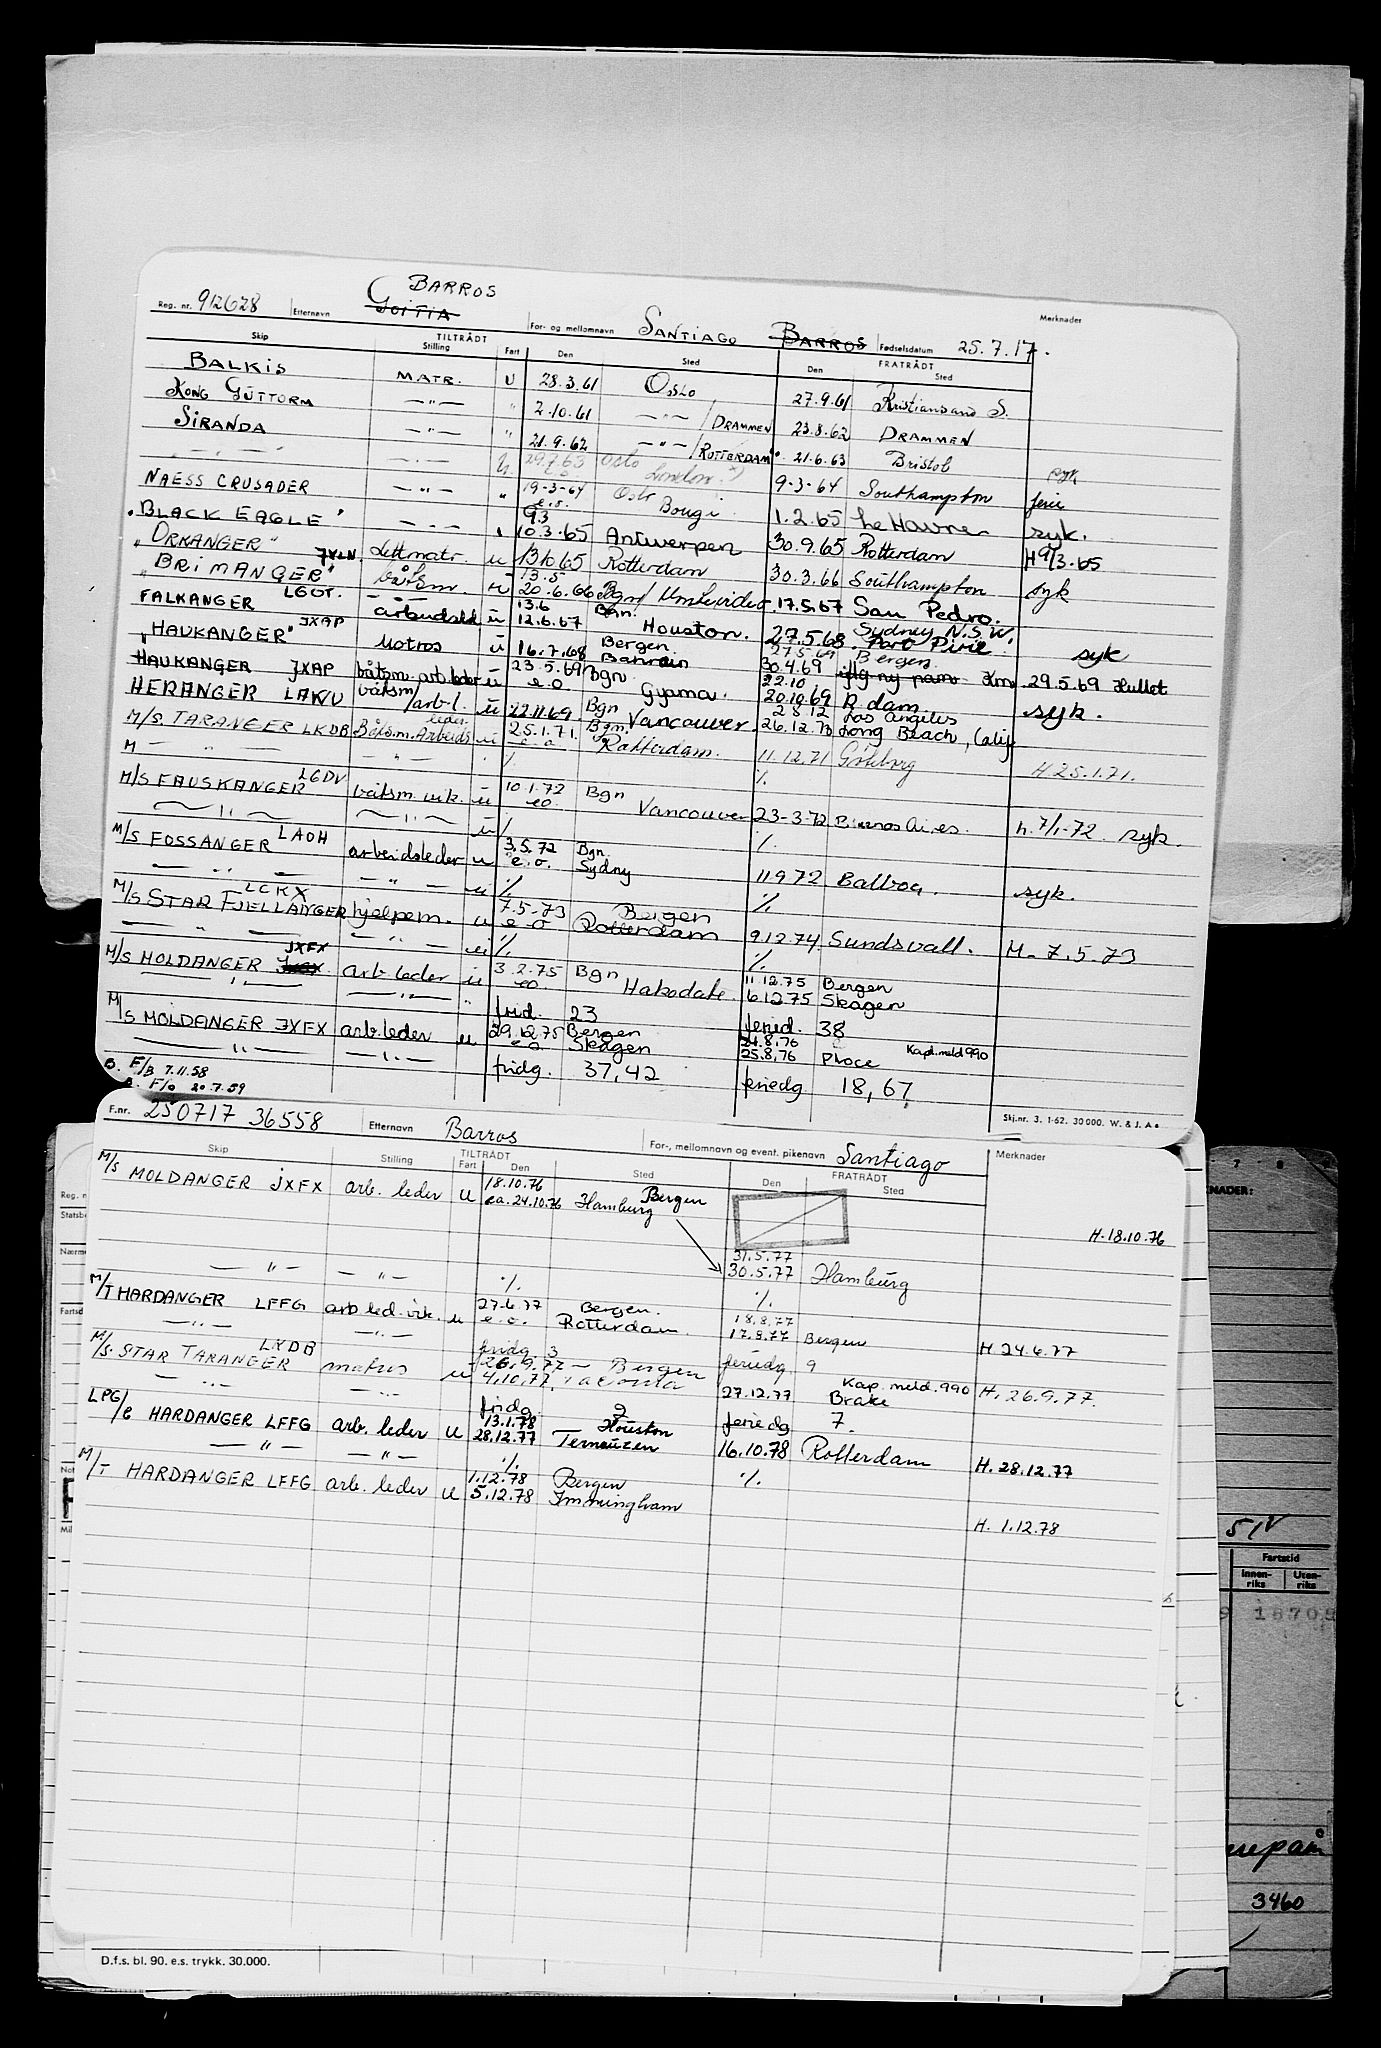 BARROS
Reg. nr. 912628 Etternavn GOITIA For- og mellomnavn SANTIAGO BARROS Fødselsdatum 25.7.17. Merknader
Skip TILTRÅDT Stilling Fart Den Sted FRATRÅDT Den Sted
BALKIS MATR. U 28.3.61 OSLO 27.9.61 Kristiansand S.
KONG GUTTORM —"— " 2.10.61 —"— / DRAMMEN 23.8.62 DRAMMEN
SIRANDA —"— " 21.9.62 —"— / ROTTERDAM 21.6.63 Bristol syk
—"— U 29.7.63 Oslo London 9-3-64 Southampton ferie
NAESS CRUSADER —"— " 19-3-64 e.o. Oslo Bougi 1.2.65 Le Havre syk.
"BLACK EAGLE" —"— 9.3 10.3.65 Antwerpen 30.9.65 Rotterdam H 9/3-65
"ORKANGER" JXLN. Lettmatr. u 13.10.65 Rotterdam 30.3.66 Southampton syk
"BRIMANGER" LGOT. båtsm. u 13.5 20.6.66 Bgn / Montevideo 17.5.67 San Pedro.
FALKANGER arbeidsld u 13.6 12.6.67 Bgn. Houston. 27.5.68 Sydney N.S.W. Port Pirie syk
"HAUKANGER" JXAP Motros u 16.7.68 Bergen Bahrain 27.5.69 30.4.69 Bergen
HAUKANGER JXAP båtsm. arb.leder u 23.5.69 e.o. Bgn Gyama. 22.10 20.10.69 R dam 29.5.69 Hullet syk.
HERANGER LAKU båtsm / arb.l. u 22.11.69. Bgn Vancouver. 28.12 26.12.70 Los Angeles Long Beach, Calif
M/S TARANGER LKDB Båtsm. Arbeidsleder u 25.1.71. e.o. Bgn. Rotterdam. 11.12.71 Göteborg H 25.1.71.
M — " — —"— ·/. ·/.
M/S FAUSKANGER LGDV båtsm. vik. u 10.1.72 e.o. Bgn Vancouver 23-3-72 Buenos Aires. h. 7/1-72. syk.
—"— —"— u ·/. ·/.
M/S FOSSANGER LAOH arbeidsleder u 3.5.72 e.o. Bgn. Sydny 11.9.72 Balboa. syk.
— " — — " — u ·/. ·/.
M/S STAR FJELLANGER LCKX hjelpem. u 7.5.73 e.o. Bergen Rotterdam 9.12.74 Sundsvall. M. 7.5.73
— " — — " — u ·/. ·/.
M/S MOLDANGER JXFX arb. leder u 3.2.75 e.o. Bgn Hakodate 11.12.75 6.12.75 Bergen Skagen
—"— —"— " frid. 23 feried. 38
M/S MOLDANGER JXFX arb.leder u 29.12.75 e.o. Bergen Skagen 24.8.76 25.8.76 Ploce Kapt.meld 990
—"— —"— fridg. 37,42 feriedg 18,67
F/B 7.11.58
F/o 20.7.59
Skj.nr. 3. 1-62. 30 000. W. & J. A.
F.nr. 250717 36558 Etternavn Barros For-, mellomnavn og event. pikenavn Santiago Merknader
Skip Stilling TILTRÅDT Fart Den Sted FRATRÅDT Den Sted
M/S MOLDANGER JXFX arb. leder u 18.10.76 ea. 24.10.76 Bergen Hamburg H. 18.10.76
31.5.77
30.5.77 Hamburg
— " — — " — ·/. ·/.
M/T HARDANGER LFFG arb.led.vik. u 27.6.77 e.o. Bergen. Rotterdam. 18.8.77 17.8.77 Bergen H. 24.6.77
—"— —"— fridg. 3 feriedg 9
M/S. STAR TARANGER LKDB matros u 26.9.77 4.10.77. Bergen Tacoma 27.12.77 Kap. meld. 990 Brake H. 26.9.77.
—"— —"— fridg 9 feriedg 7.
LPG/C HARDANGER LFFG arb. leder u 13.1.78 28.12.77 Houston Terneuzen 16.10.78 Rotterdam H. 28.12.77
— " — — " — ·/. ·/.
M/T HARDANGER LFFG arb. leder u 1.12.78 5.12.78 Bergen Immingham H. 1.12.78
D.f.s. bl. 90. e.s. trykk. 30.000.
7 8
51V
Fartstid
Innen-riks Uten-riks
3460